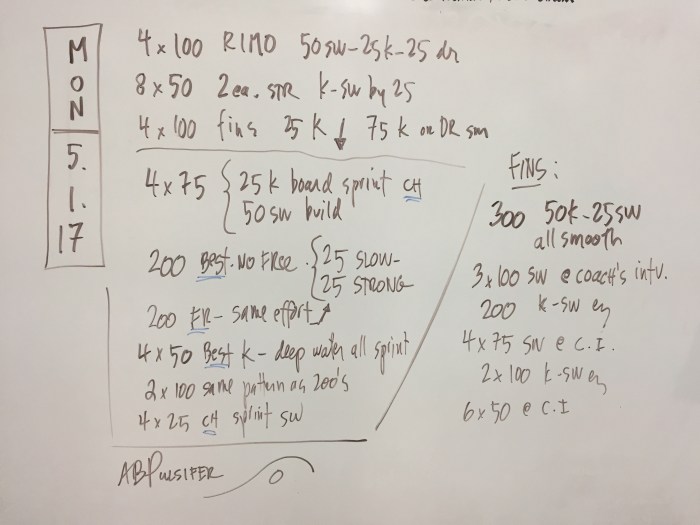 MON
5.
1.
17
4 x 100 RIMO 50sw-25k-25 dr
8 x 50 2ea. STR k-sw by 25
4 x 100 fins 25 K ↓ 75 k on DR sm
4 x 75 { 25 k board sprint CH
50 sw build
200 Best. NO FRee. { 25 SLOW-
25 STRONG
200 FR - same effort ↗
4 x 50 Best k - deep water all sprint
2 x 100 same pattern as 200's
4 x 25 CH sprint sw
ABPulsifer
FINS:
300 50k-25sw
all smooth
3 x 100 SW @ coach's intv.
200 k-sw ez
4 x 75 SW @ C.I.
2 x 100 k-sw ez
6 x 50 @ C.I